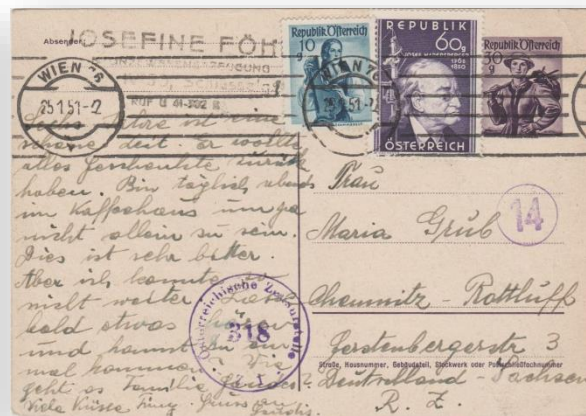 Absender: JOSEFINE FÖH
KUNZEWARENERZEUGUNG
RUF U 41-5-02
WIEN 76
25.1.51-2
10
g
Republik Österreich
REPUBLIK
60g
JOSEF MADERSPERGER
1768
1850
ÖSTERREICH
Republik Österreich
30g
WIEN 76
25.1.51
ist eine
schöne Zeit. Er wollte
alles Geschenkte zurück
haben. Bin täglich abends
im Kaffeehaus um ja
nicht allein zu sein.
Dies ist sehr bitter.
Aber ich konnte
nicht weiter. Lasse
bald etwas hören
und kannst Du ein
mal kommen. Wie
geht es Familie
Viele Küsse
Österreichische Zensurstelle
318
Frau
Maria Grub
14
Chemnitz - Rottluff
Gerstenbergerstr 3
Straße, Hausnummer, Gebäudeteil, Stockwerk oder Postschließfachnummer
Deutschland - Sachsen
R. Z.